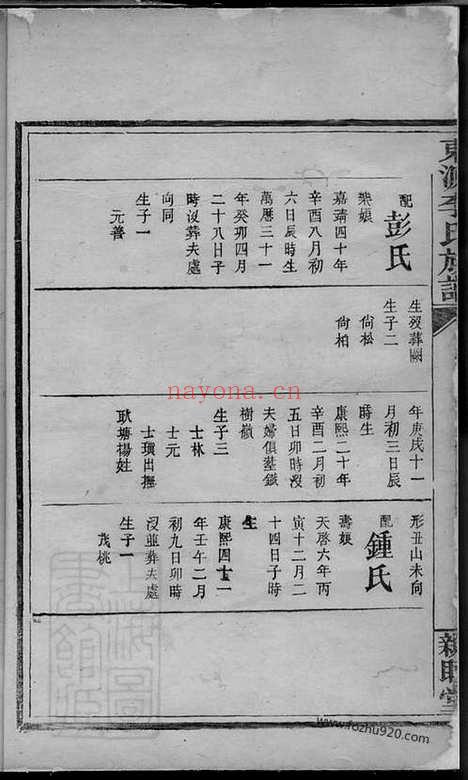 東源李氏族譜
親睦堂
配彭氏
樂娘
嘉靖四十年
辛酉八月初
六日辰時生
萬曆三十一
年癸卯四月
二十八日子
時沒葬夫處
向同
生子一
元善
生歿葬闕
生子二
尙松
尙柏
年庚戌十一
月初三日辰
時生
康熙二十年
辛酉二月初
五日卯時沒
夫婦俱葬鐵
樹嶺
生子三
士林
士元
士瑱出撫
耿塘楊姓
形丑山未向
配鍾氏
壽娘
天啓六年丙
寅十二月二
十四日子時
生
康熙四十一
年壬午二月
初九日卯時
沒並葬夫處
生子一
茂桃
nayona.cn
www.fozhu920.com